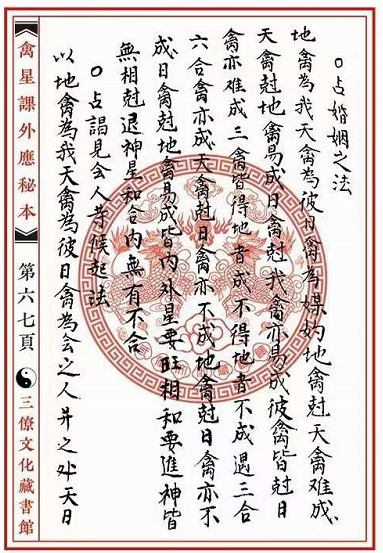 ○占婚姻之法
地禽為我天禽為彼日禽為媒妁地禽尅天禽难成
天禽尅地禽易成日禽尅我禽亦易成彼禽皆尅日
禽亦难成三禽皆得地者成不得地者不成遇三合
六合禽亦成天禽尅日禽亦不成地禽尅日禽亦不
成日禽尅地禽易成皆内外星要旺相和要進神皆
無相尅退神星和合内無有不合
○占謁見会人等候起法
以地禽為我天禽為彼日禽為会之人并之外天日
《禽星課外應秘本》
第六七頁
三僚文化藏書館